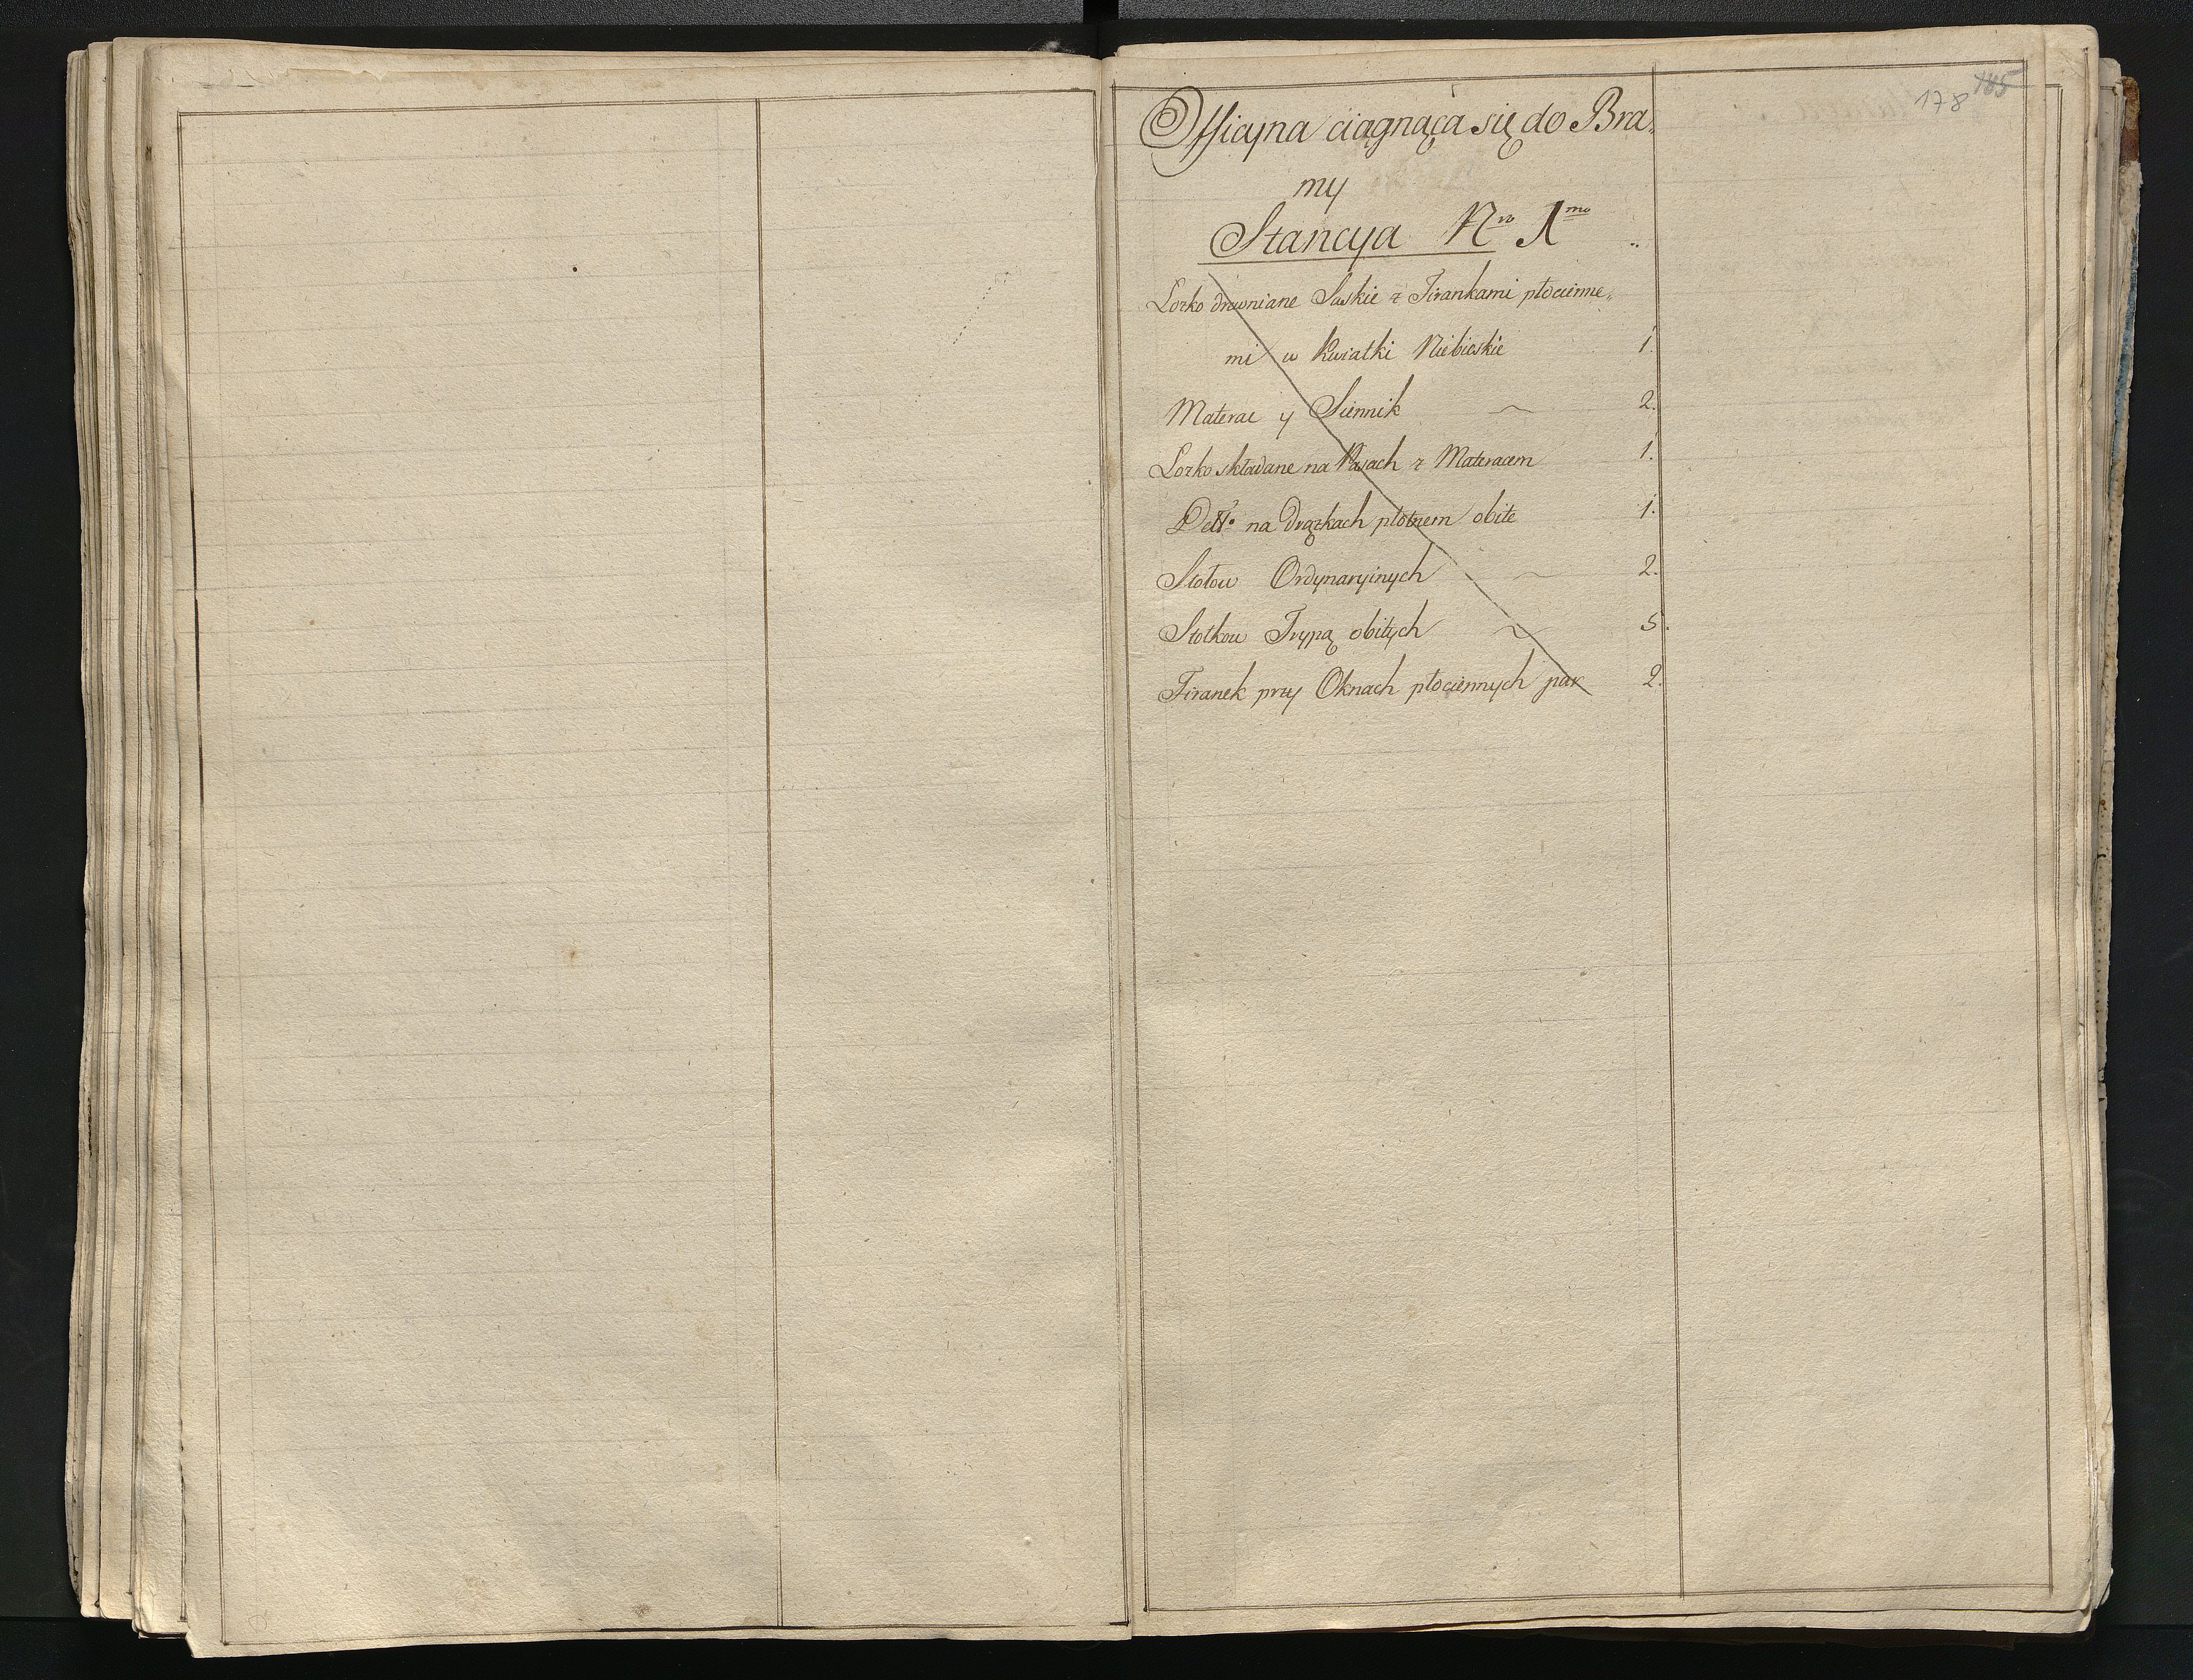 178 185
Officyna ciągnąca się do Bra„
my
Stancya Nro 1mo
Lozko drewniane Saskie z Firankami płocienne„
mi w Kwiatki Niebieskie 1.
Materac y Siennik ~ 2.
Lozko składane na Pasach z Materacem 1.
Detto na Drązkach płotnem obite 1.
Stołow Ordynaryinych ~ 2.
Stołkow Trypą obitych ~ 5.
Firanek przy Oknach płociennych par 2.